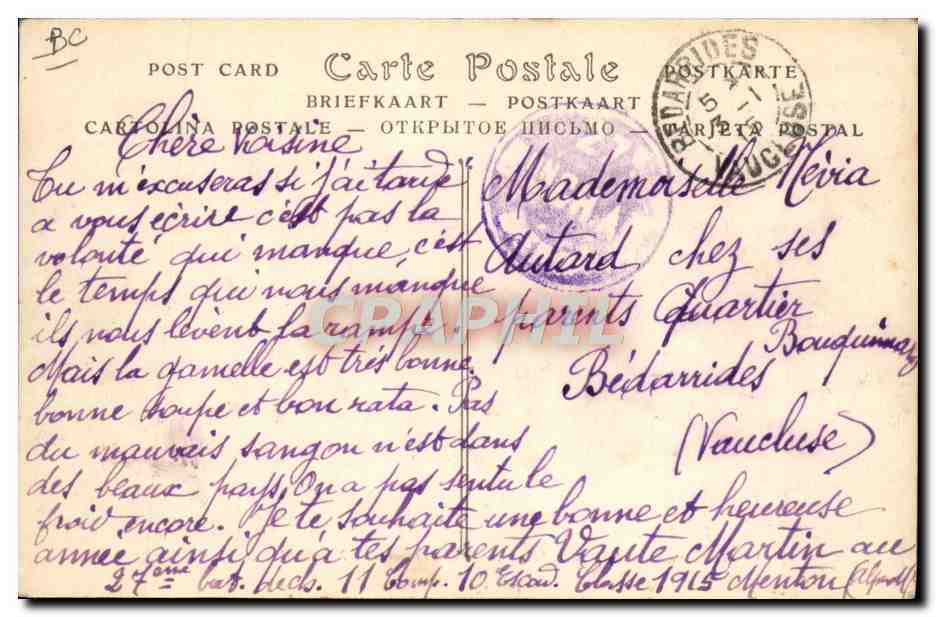 BC
POST CARD Carte Postale POSTKARTE
BRIEFKAART — POSTKAART
CARTOLINA POSTALE — ОТКРЫТОЕ ПИСЬМО — TARJETA POSTAL
BEDARRIDES
VAUCLUSE
Chère voisine
Tu m'excuseras si j'ai tardé
a vous écrire c'est pas la
volonté qui manque, c'est
le temps qui nous manque
ils nous lèvent la rampe.
Mais la gamelle est très bonne.
bonne soupe et bon rata. Pas
du mauvais sang on n'est dans
des beaux pays, On a pas sentu le
froid encore. Je te souhaite une bonne et heureuse
année ainsi qu'à tes parents Vaute Martin au
27ème bat. 11 Comp. 10 Escad. Classe 1915 Menton
Mademoiselle Névia
Autard chez ses
parents Quartier
Bédarrides
(Vaucluse)
CPAPHIL